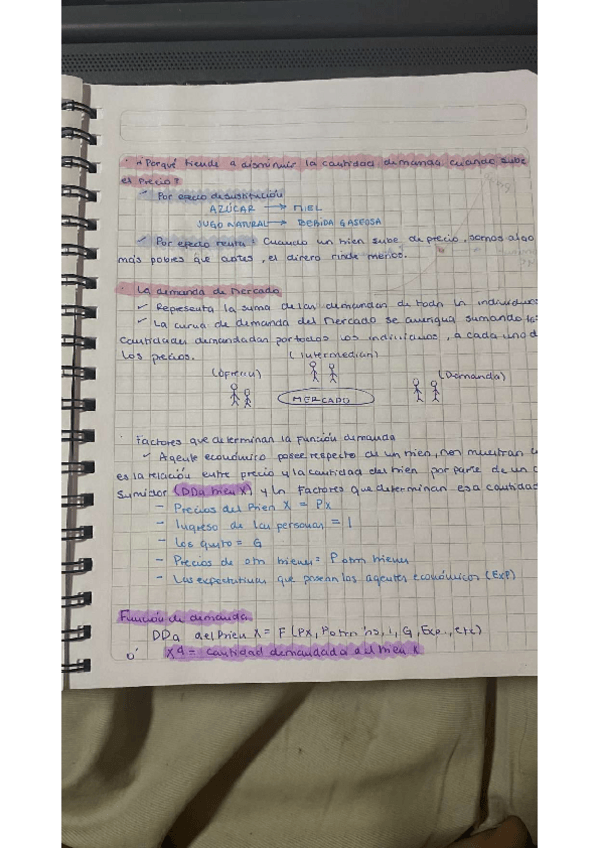 ¿Porqué tiende a disminuir la cantidad demanda cuando sube
el precio?
✓ Por efecto de sustitución
AZÚCAR → MIEL
JUGO NATURAL → BEBIDA GASEOSA
✓ Por efecto renta: Cuando un bien sube de precio, somos algo
más pobres que antes, el dinero rinde menos.
· La demanda de mercado
✓ Representa la suma de las demandas de todos los individuos
✓ La curva de demanda del mercado se sumando
cantidades demandadas por todos los individuos, a cada uno d
los precios.
(Intermediari)
(Oferta) (Demanda)
MERCADO
· Factores que determinan la función demanda
✓ Agente económico posee respecto de un bien, nos muestran
es la relación entre precio y la cantidad del bien por parte de un c
sumidor (DDa bien X) y los factores que determinan esa cantidad
- Precios del Bien X = Px
- Ingreso de las personas = I
- Los gusto = G
- Precios de otros bienes = P otros bienes
- Las expectativas que posean los agentes económicos (Exp)
Función de demanda
DDa del Bien X = F (Px, P otros bns, I, G, Exp., etc)
o' Xd = cantidad demandada del bien X